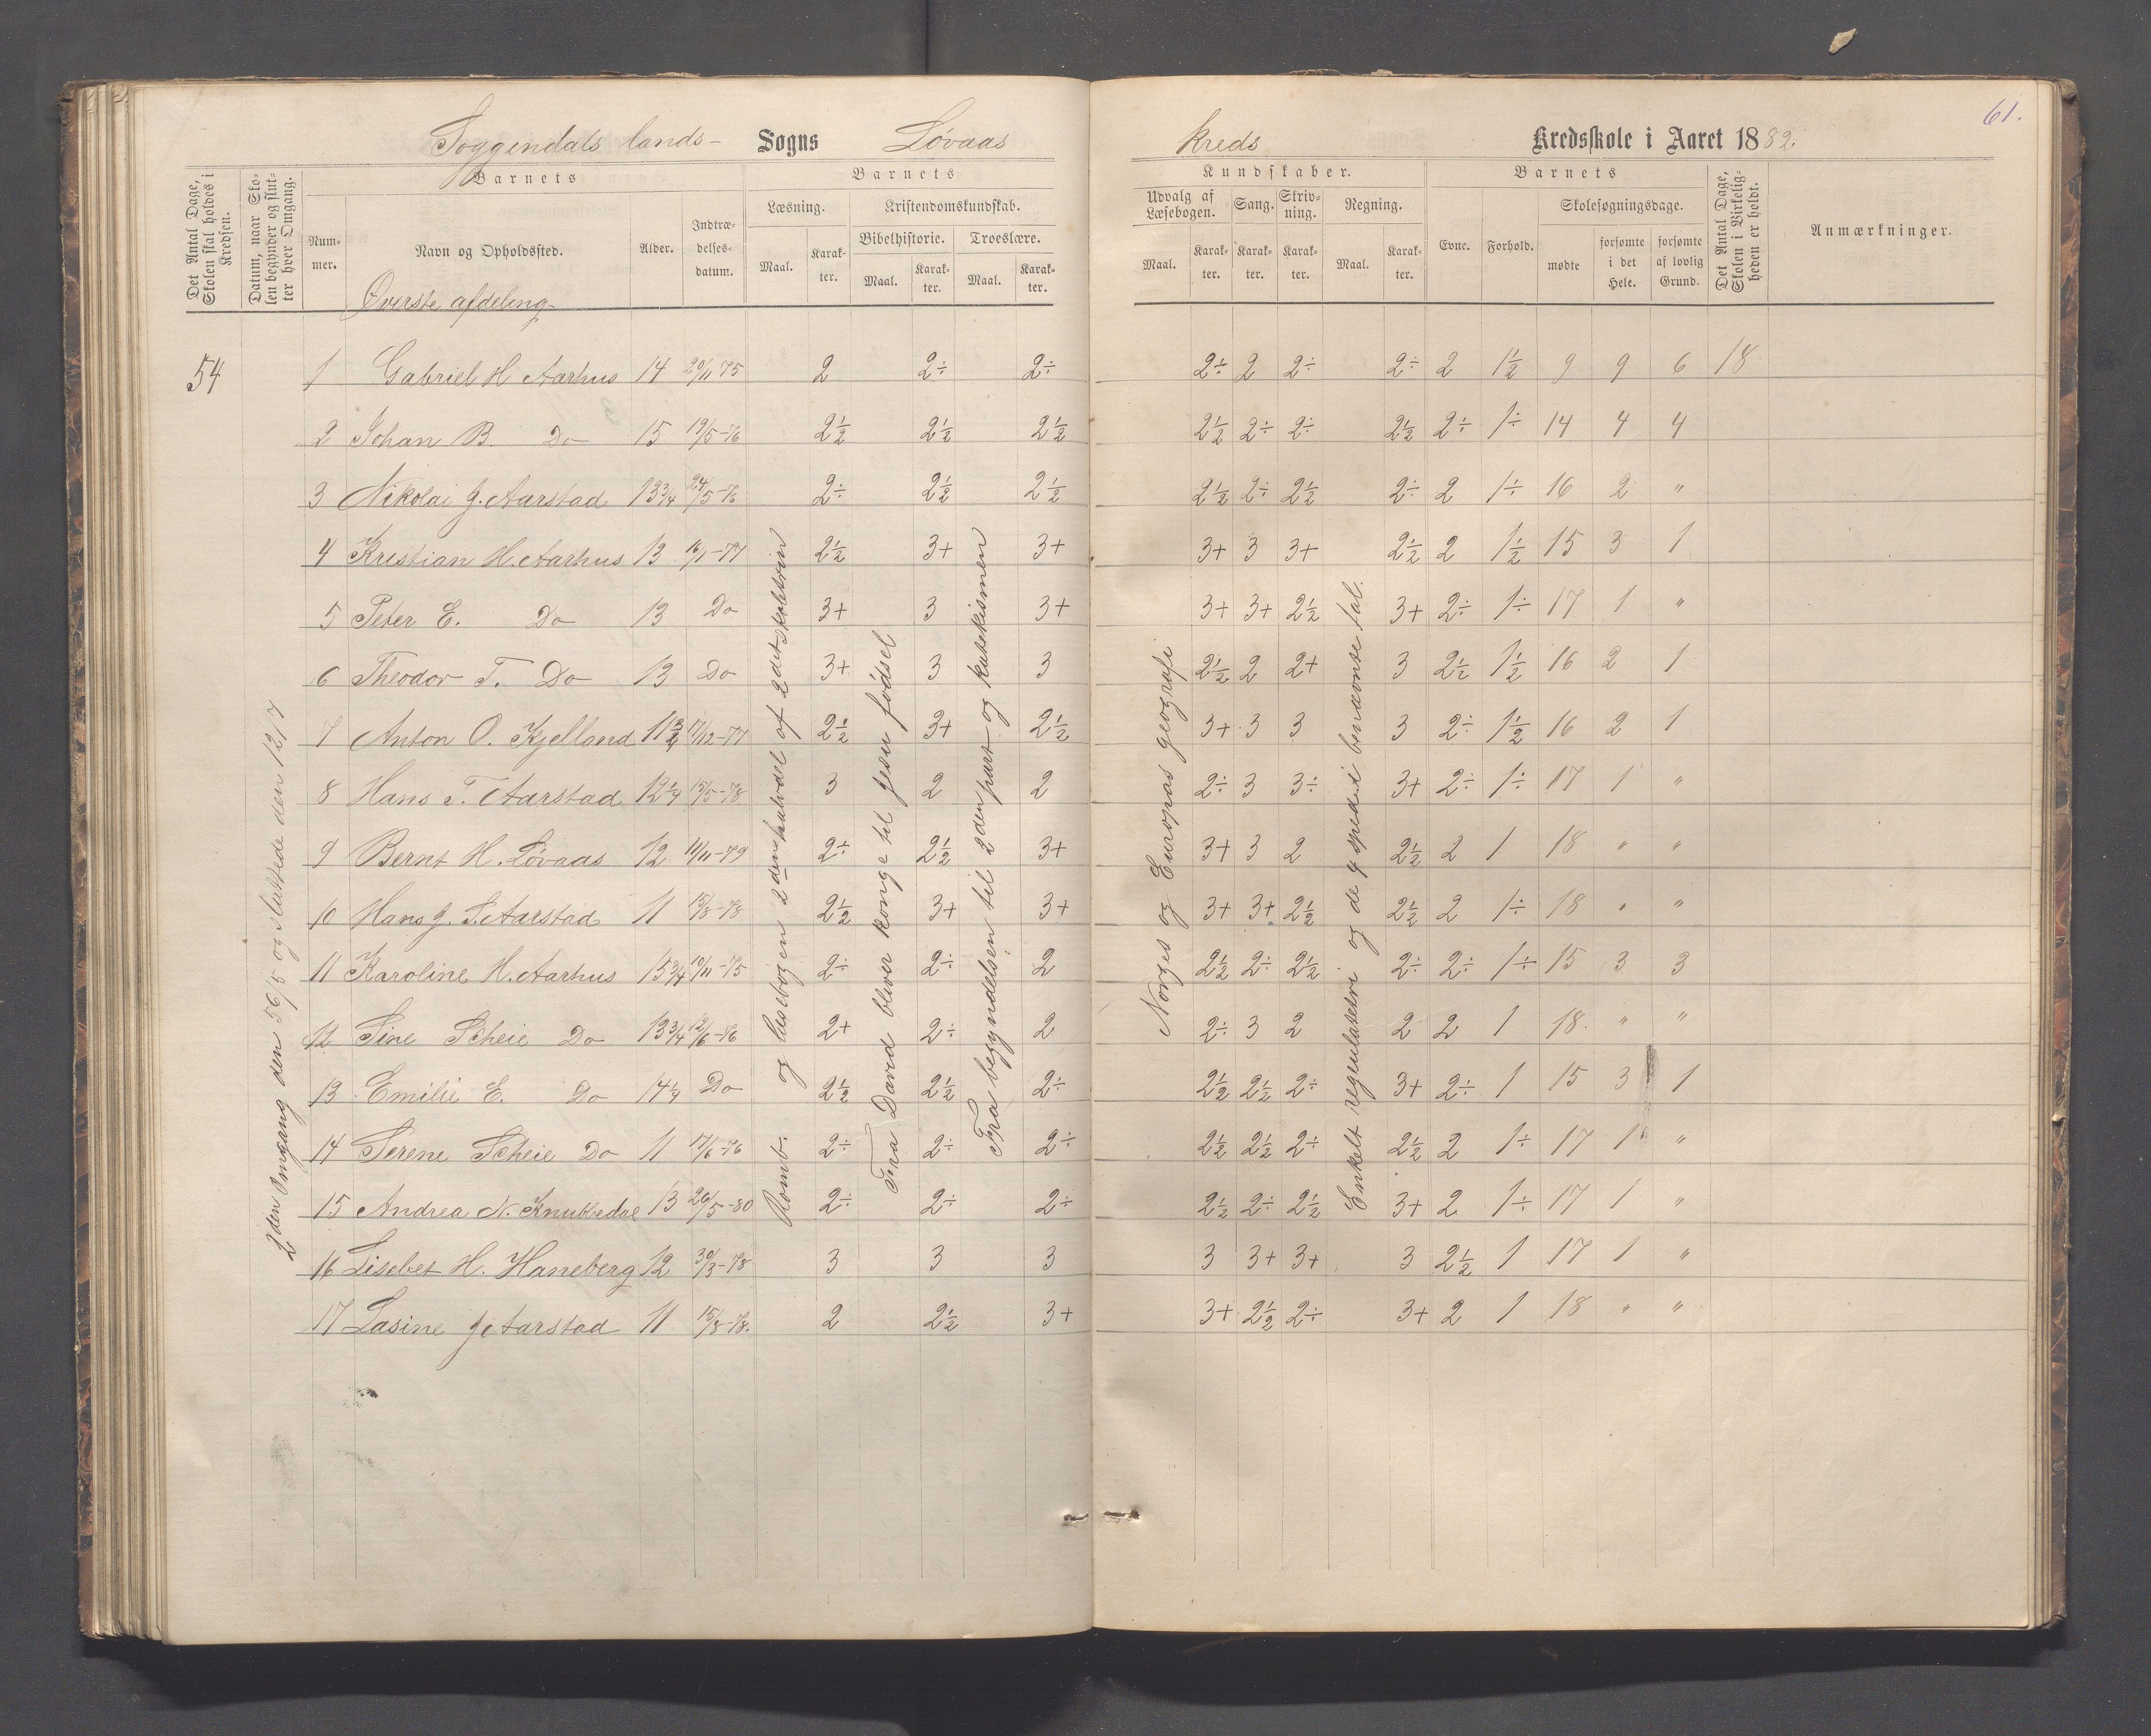 61.
Soggendals lands- Sogns Løvaas kreds Kredsskole i Aaret 1882.
Det Antal Dage, Skolen skal holdes i Kredsen.
Datum, naar Skolen begynder og slutter hver Omgang.
Barnets
Nummer.
Navn og Opholdssted.
Alder.
Indtrædelsesdatum.
Barnets
Læsning.
Maal.
Karakter.
Kristendomskundskab.
Bibelhistorie.
Maal.
Karakter.
Troeslære.
Maal.
Karakter.
Kundskaber.
Udvalg af Læsebogen.
Maal.
Karakter.
Sang.
Karakter.
Skrivning.
Karakter.
Regning.
Maal.
Karakter.
Barnets
Evne.
Forhold.
Skolesøgningsdage.
mødte
forsømte i det Hele.
forsømte af lovlig Grund.
Det Antal Dage, Skolen i Virkeligheden er holdt.
Anmærkninger.
Øverste afdeling
54 1 Gabriel H Aarhus 14 20/11 75 2 2÷ 2÷ 2÷ 2 2÷ 2÷ 2 1½ 9 9 6 18
2 Johan B. Do 15 19/5-76 2½ 2½ 2½ 2½ 2÷ 2÷ 2½ 2÷ 1÷ 14 4 4
3 Nikolai J. Aarstad 13¾ 24/5-76 2÷ 2½ 2½ 2½ 2÷ 2½ 2÷ 2 1÷ 16 2 "
4 Kristian H. Aarhus 13 16/1-77 2½ 3+ 3+ 3+ 3 3+ 2½ 2 1½ 15 3 1
5 Peter E. Do 13 Do 3+ 3 3+ 3+ 3+ 2½ 3+ 2÷ 1÷ 17 1 "
6 Theodor T. Do 13 Do 3+ 3 3 2½ 2 2+ 3 2½ 1½ 16 2 1
7 Anton O. Kjelland 11¾ 17/12-77 2½ 3+ 2½ 3+ 3 3 3 2÷ 1½ 16 2 1
8 Hans T. Aarstad 12¼ 15/5-78 3 2 2 2÷ 3 3÷ 3+ 2÷ 1÷ 17 1 "
9 Bernt H. Løvaas 12 11/11-79 2÷ 2½ 3+ 3+ 3 2 2½ 2 1 18 " "
10 Hans J. S. Aarstad 11 15/8-78 2½ 3+ 3+ 3+ 3+ 2½ 2½ 2 1÷ 18 " "
11 Karoline H. Aarhus 15¾ 10/11-75 2÷ 2÷ 2 2½ 2÷ 2½ 2÷ 2÷ 1÷ 15 3 3
12 Sine Scheie Do 13¾ 12/6-76 2+ 2÷ 2 2÷ 3 2 2 2 1 18 " "
13 Emilie E. Do 14¼ Do 2½ 2½ 2÷ 2½ 2½ 2÷ 3+ 2÷ 1 15 3 1
14 Serene Scheie Do 11 17/6-76 2÷ 2÷ 2÷ 2½ 2½ 2÷ 2½ 2 1÷ 17 1 "
15 Andrea N. Knubbedal 13 26/5-80 2÷ 2÷ 2÷ 2½ 2÷ 2½ 3+ 2 1÷ 17 1 "
16 Lisebet H. Haneberg 12 30/3-78 3 3 3 3 3+ 3+ 3 2½ 1 17 1 "
17 Lasine J Aarstad 11 15/8-78. 2 2½ 3+ 3+ 2½ 2÷ 3+ 2 1 18 " "
2den Omgang den 5 6/5 og sluttede den 12/7
og læsebogen 2den halvdel af 2det skoletrin
Fra David bliver konge til Jesu fødsel
Fra begyndelsen til 2den part og katekismen
Norges og Europas geografi
Enkelt regulatetri og de 4 sped. i benævnte tal.